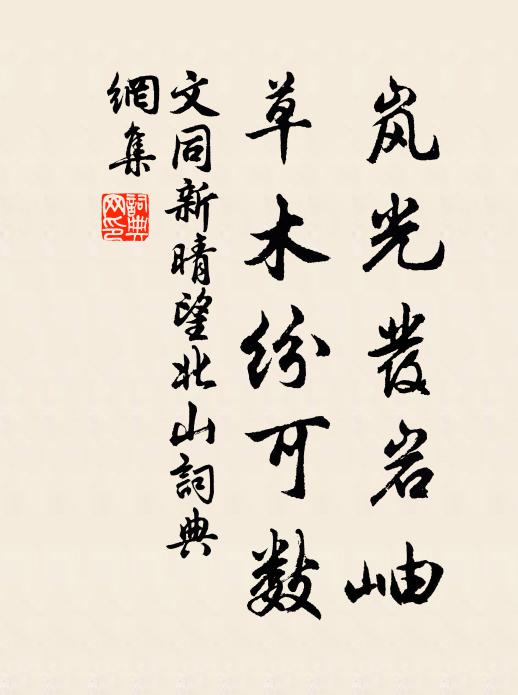 岚光发岩岫
草木纷可数
文同新晴望北山詞典
網集
詞典
网印